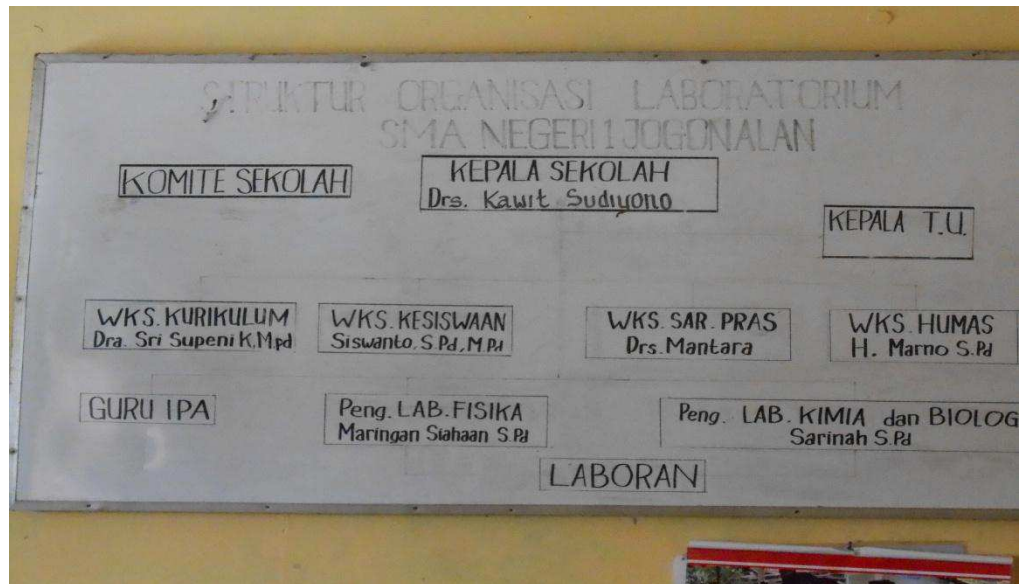 STRUKTUR ORGANISASI LABORATORIUM
SMA NEGERI 1 JOGONALAN
KOMITE SEKOLAH
KEPALA SEKOLAH
Drs. Kawit Sudiyono
KEPALA T.U.
WKS. KURIKULUM
Dra. Sri Supeni K, M.pd
WKS. KESISWAAN
Siswanto, S.Pd, M.Pd
WKS. SAR. PRAS
Drs. Mantara
WKS. HUMAS
H. Marno S.Pd
GURU IPA
Peng. LAB. FISIKA
Maringan Siahaan S.Pd
Peng. LAB. KIMIA dan BIOLOG
Sarinah S.Pd
LABORAN